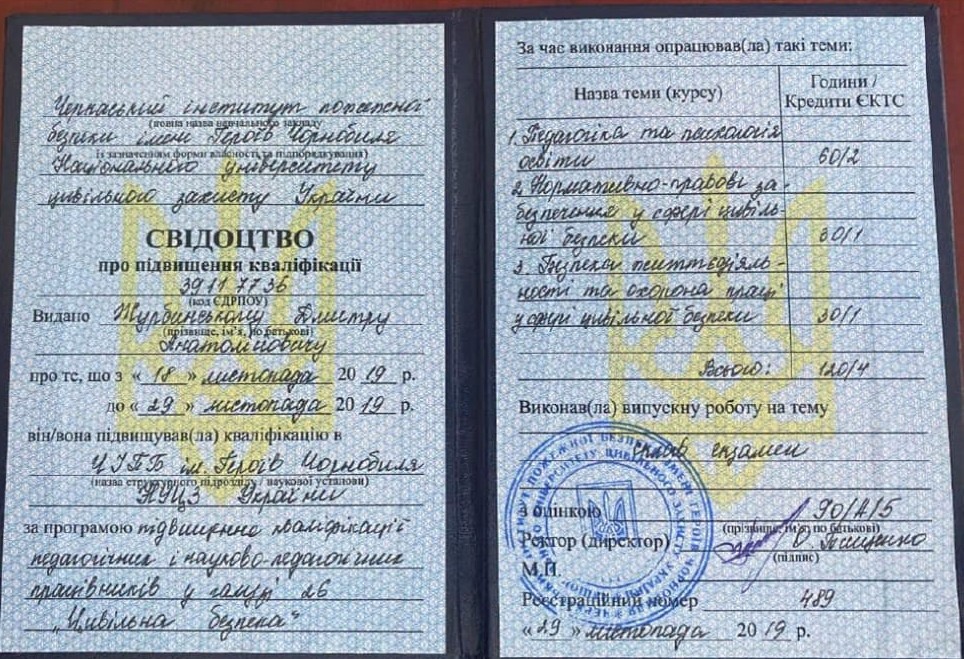 Черкаський інститут пожежної
(повна назва навчального закладу
безпеки імені Героїв Чорнобиля
із зазначенням форми власності та підпорядкування)
Національного університету
цивільного захисту України
СВІДОЦТВО
про підвищення кваліфікації
39117736
(код ЄДРПОУ)
Видано Журбинському Дмитру
(прізвище, ім'я, по батькові)
Анатолійовичу
про те, що з « 18 » листопада 20 19 р.
до « 29 » листопада 20 19 р.
він/вона підвищував(ла) кваліфікацію в
ЧІПБ ім. Героїв Чорнобиля
(назва структурного підрозділу / наукової установи)
НУЦЗ України
за програмою підвищення кваліфікації
педагогічних і науково-педагогічних
працівників у галузі 26
„Цивільна безпека"
За час виконання опрацював(ла) такі теми:
Назва теми (курсу)
Години /
Кредити ЄКТС
1. Педагогіка та психологія
освіти 60/2
2. Нормативно-правові за-
безпечення у сфері цивіль-
ної безпеки 30/1
3. Безпека життєдіяль-
ності та охорона праці
у сфері цивільної безпеки 30/1
Всього: 120/4
Виконав(ла) випускну роботу на тему
екзамен
з оцінкою 90/А/5
(прізвище, ім'я, по батькові)
Ректор (директор) О. Тищенко
(підпис)
М.П.
Реєстраційний номер 489
« 29 » листопада 20 19 р.